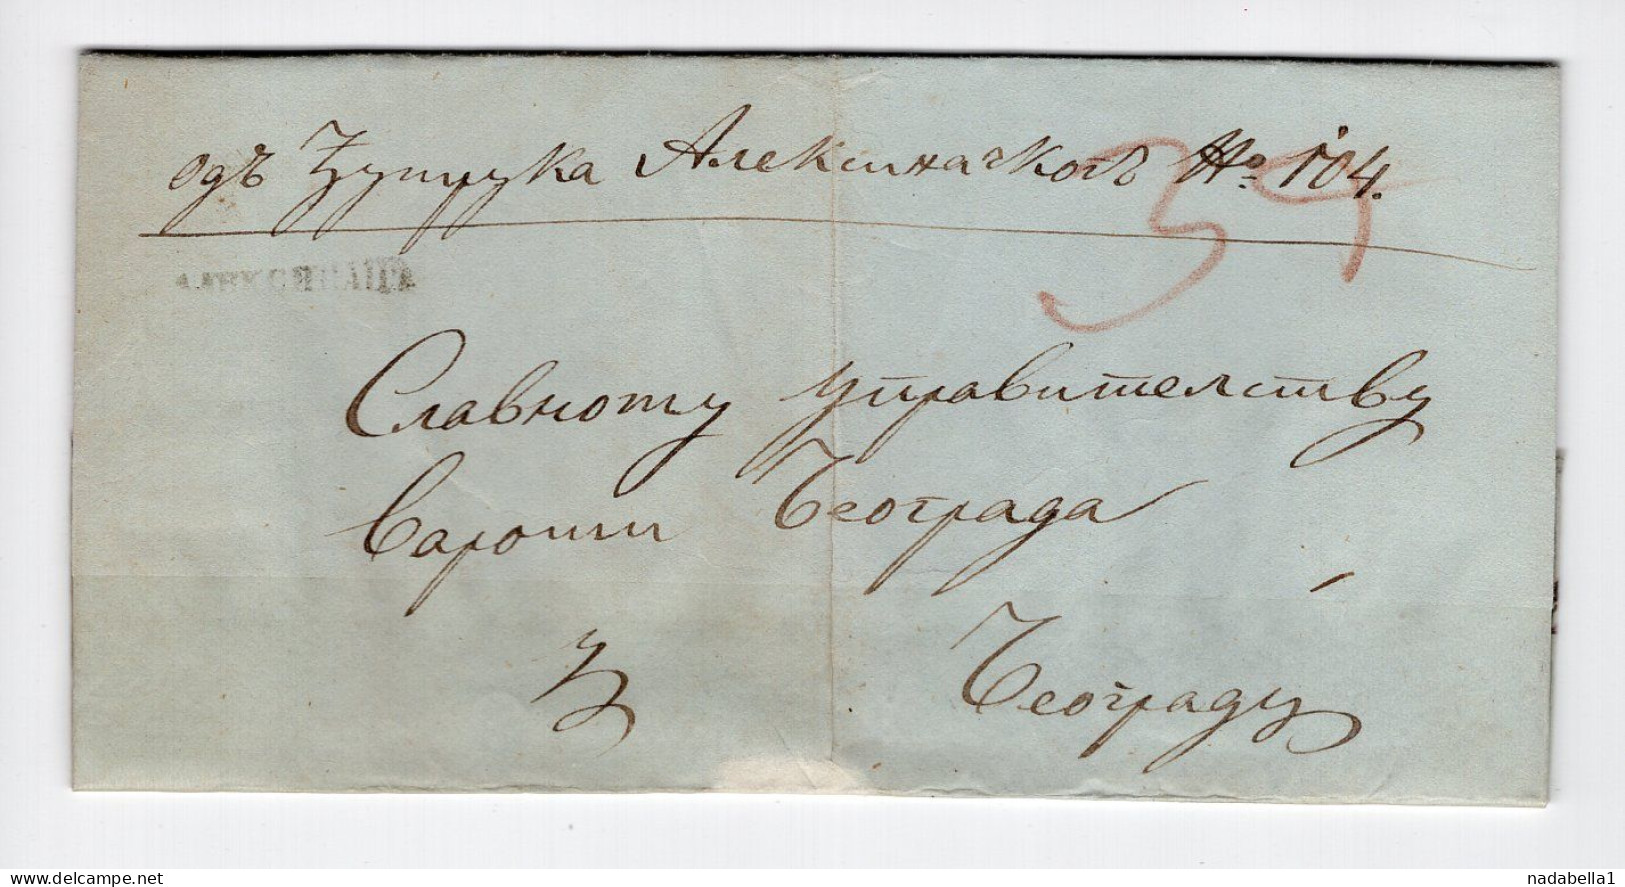 одъ Ђумрука Алексиначкогъ № 104.
АЛЕКСИНАЦЪ
Славному управителству
вароши Београда
у
Београду
delcampe.net
nadabella1